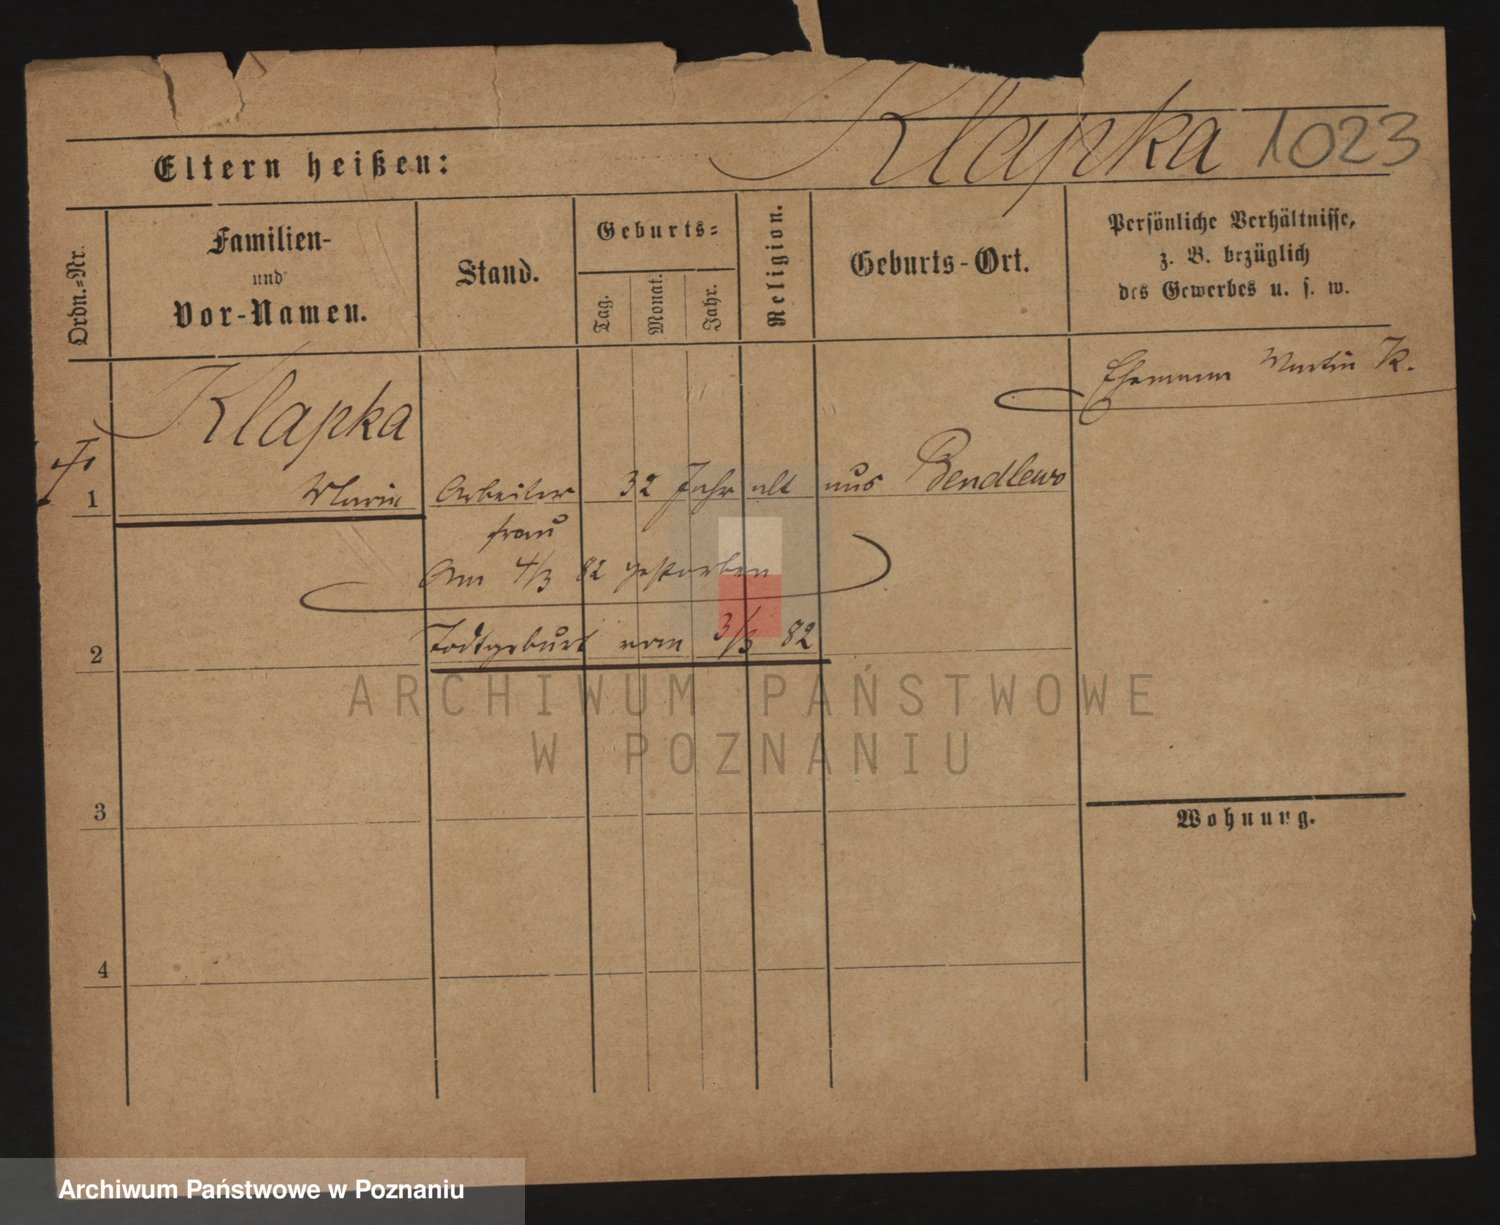 Klapka 1023
Eltern heißen:
Ordn.-Nr.
Familien-
und
Vor-Namen.
Stand.
Geburts-
Tag.
Monat.
Jahr.
Religion.
Geburts-Ort.
Persönliche Verhältnisse,
z. B. bezüglich
des Gewerbes u. s. w.
Ehemann Martin K.
Klapka
1 Marie Arbeiter 32 Jahr alt aus Bendlewo
frau
Am 4/3 82 gestorben
2 Todtgeburt vom 3/3 82
ARCHIWUM PAŃSTWOWE
W POZNANIU
3
Wohnung.
4
Archiwum Państwowe w Poznaniu